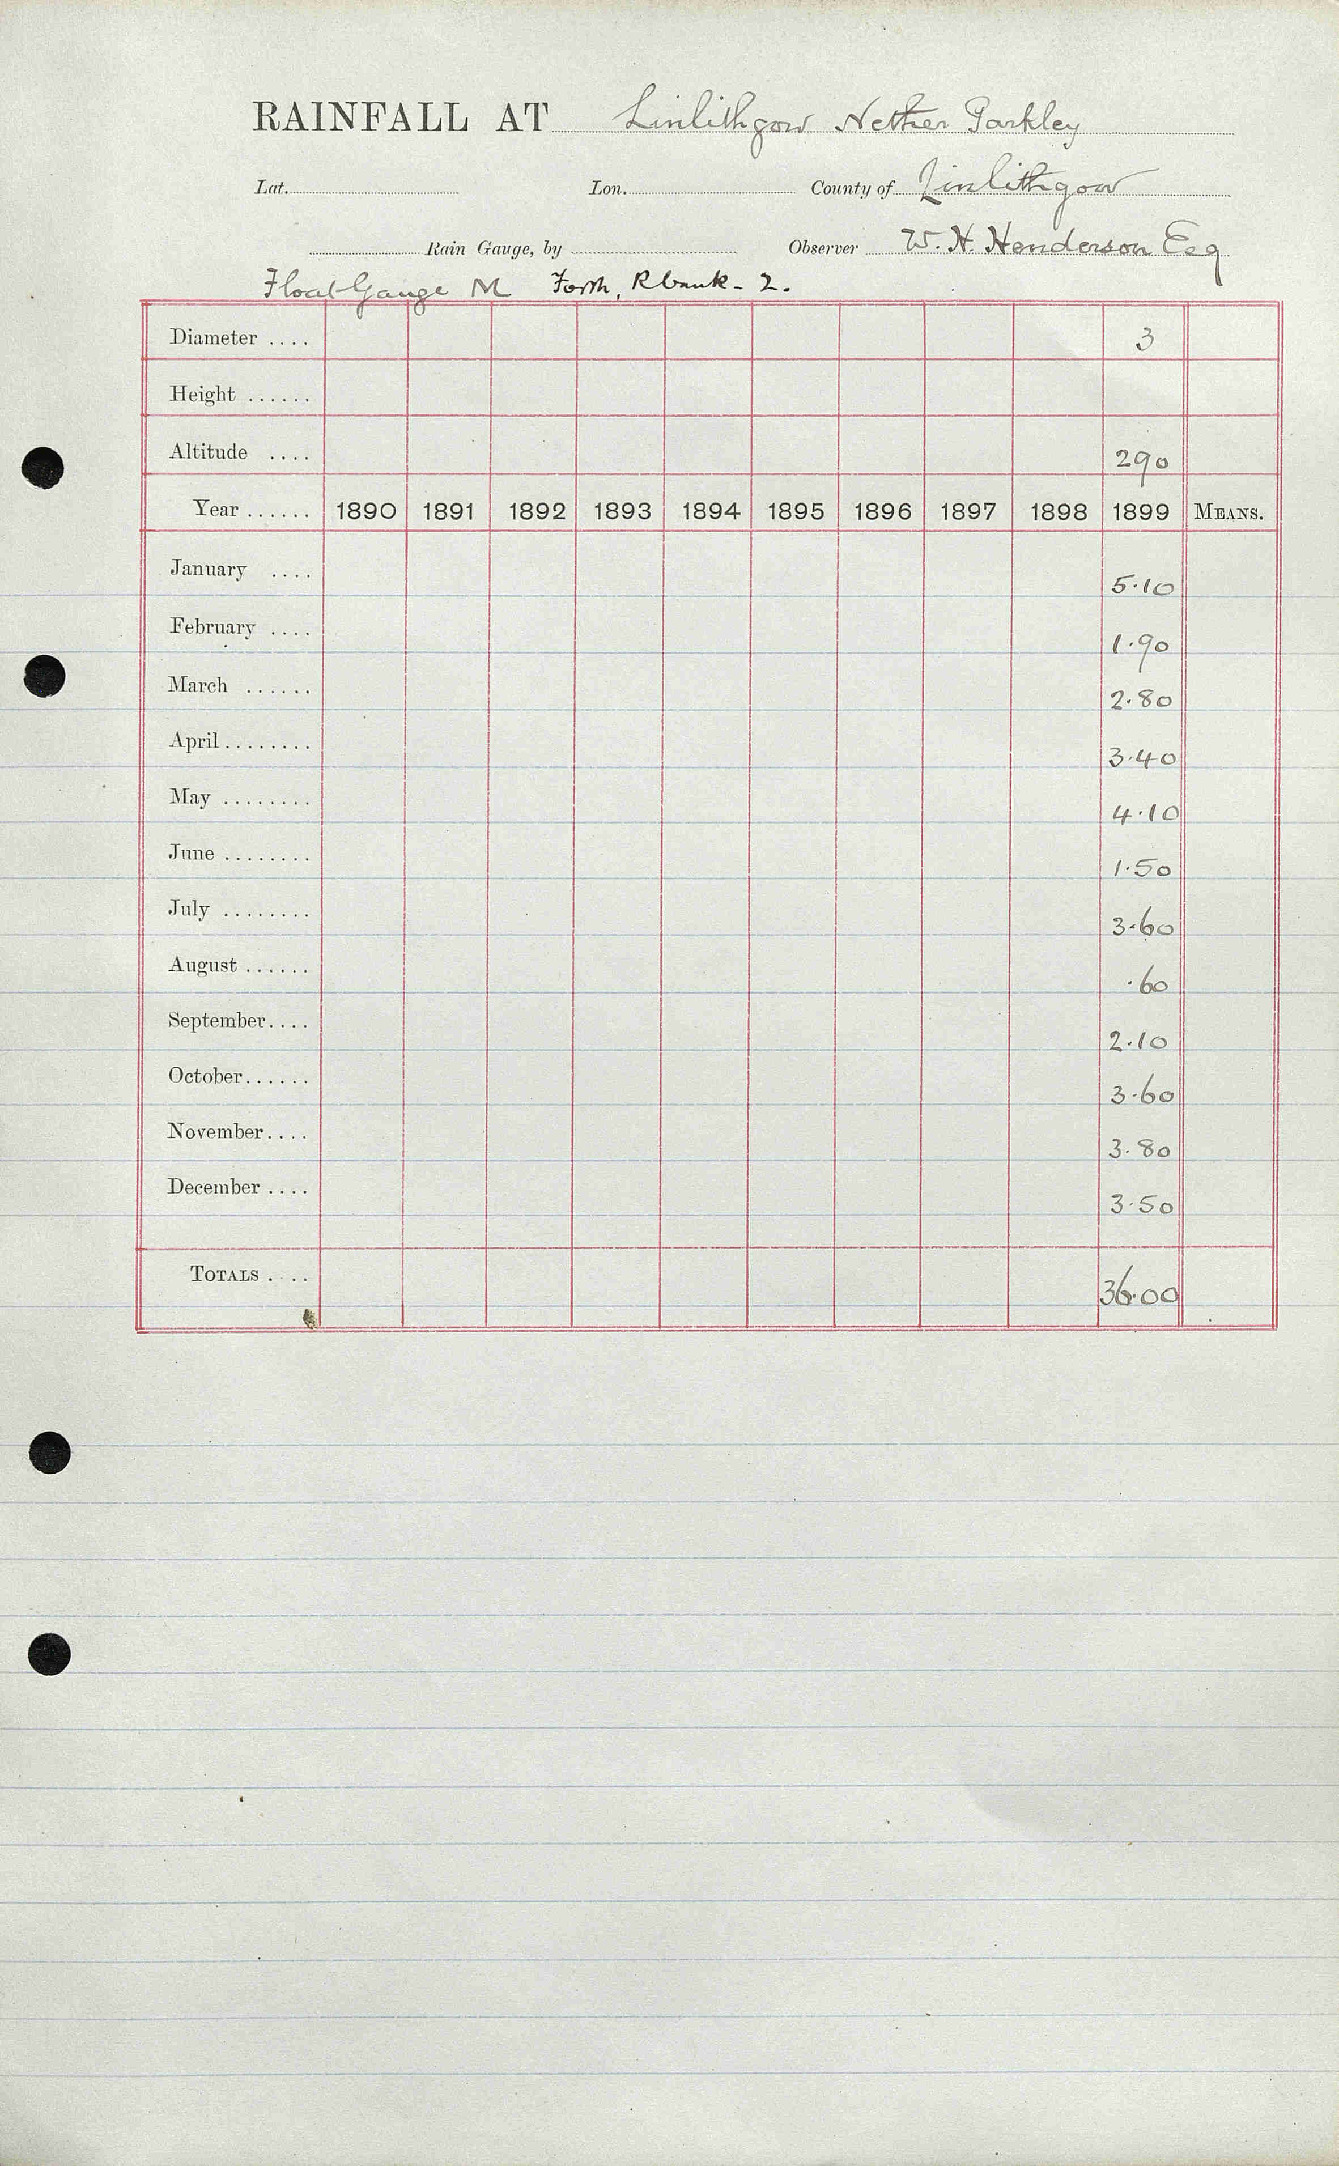 RAINFALL AT Linlithgow Nether Parkley
Lat. Lon. County of Linlithgow
Rain Gauge, by Observer W. H. Henderson Esq
Float Gauge M Forth, Rbank - 2.
Diameter .... 3
Height ......
Altitude .... 290
Year ...... 1890 1891 1892 1893 1894 1895 1896 1897 1898 1899 MEANS.
January .... 5.10
February .... 1.90
March ...... 2.80
April ........ 3.40
May ........ 4.10
June ........ 1.50
July ........ 3.60
August ...... .60
September.... 2.10
October...... 3.60
November.... 3.80
December .... 3.50
TOTALS .... 36.00